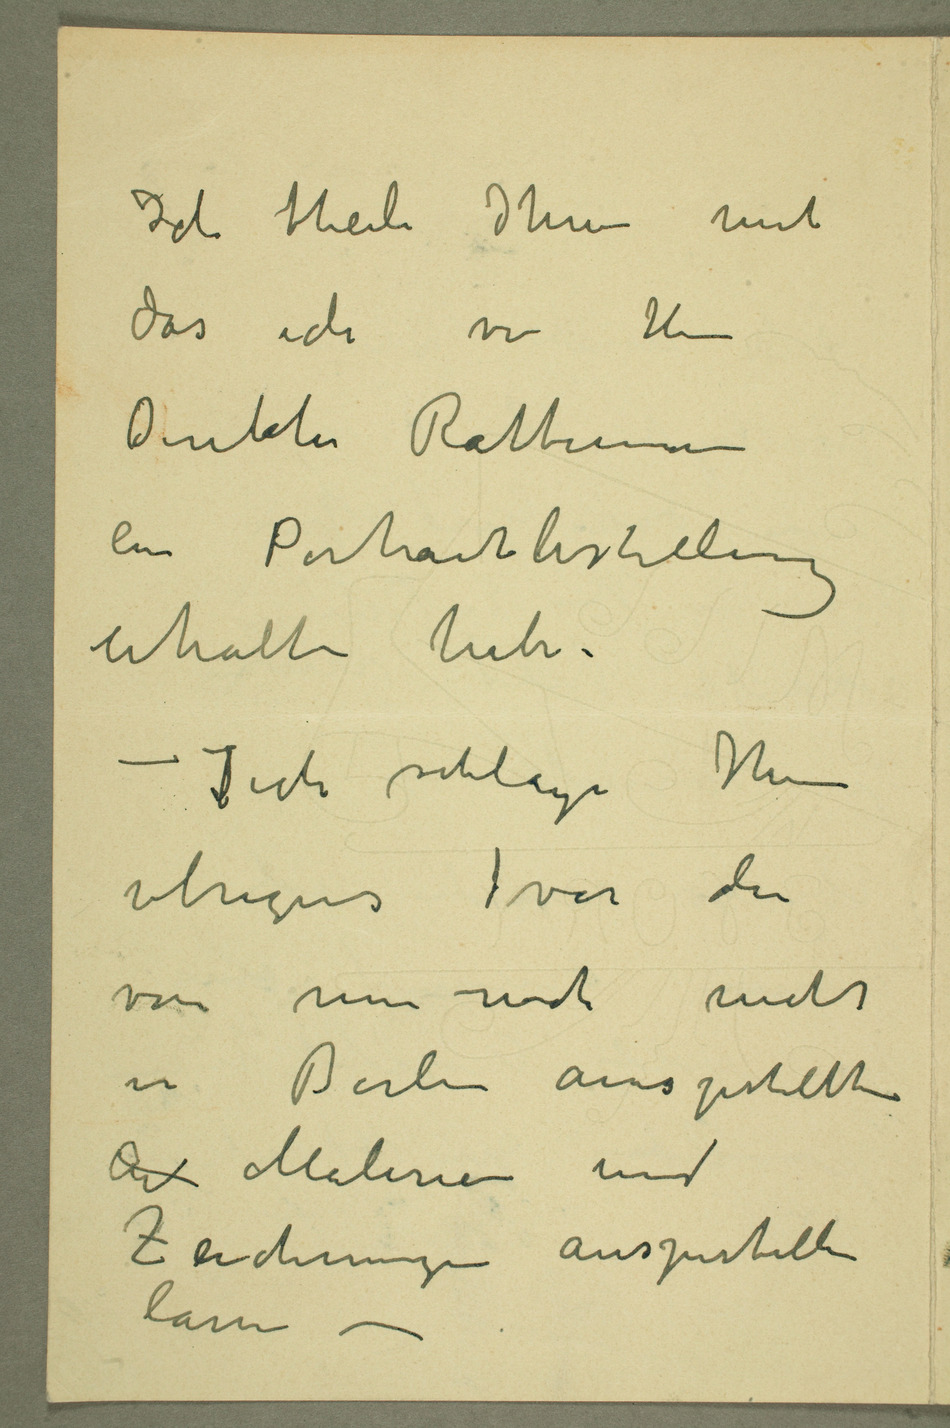 Ich theile Ihnen mit
das ich von Herrn
Direktor Rathenau
ein Portraitbestellung
erhalten habe.
— Ich schlage Ihnen
übrigens vor die
von mir noch nicht
in Berlin ausgestellten
Malerien und
Zeichnungen ausgestellen
lassen —